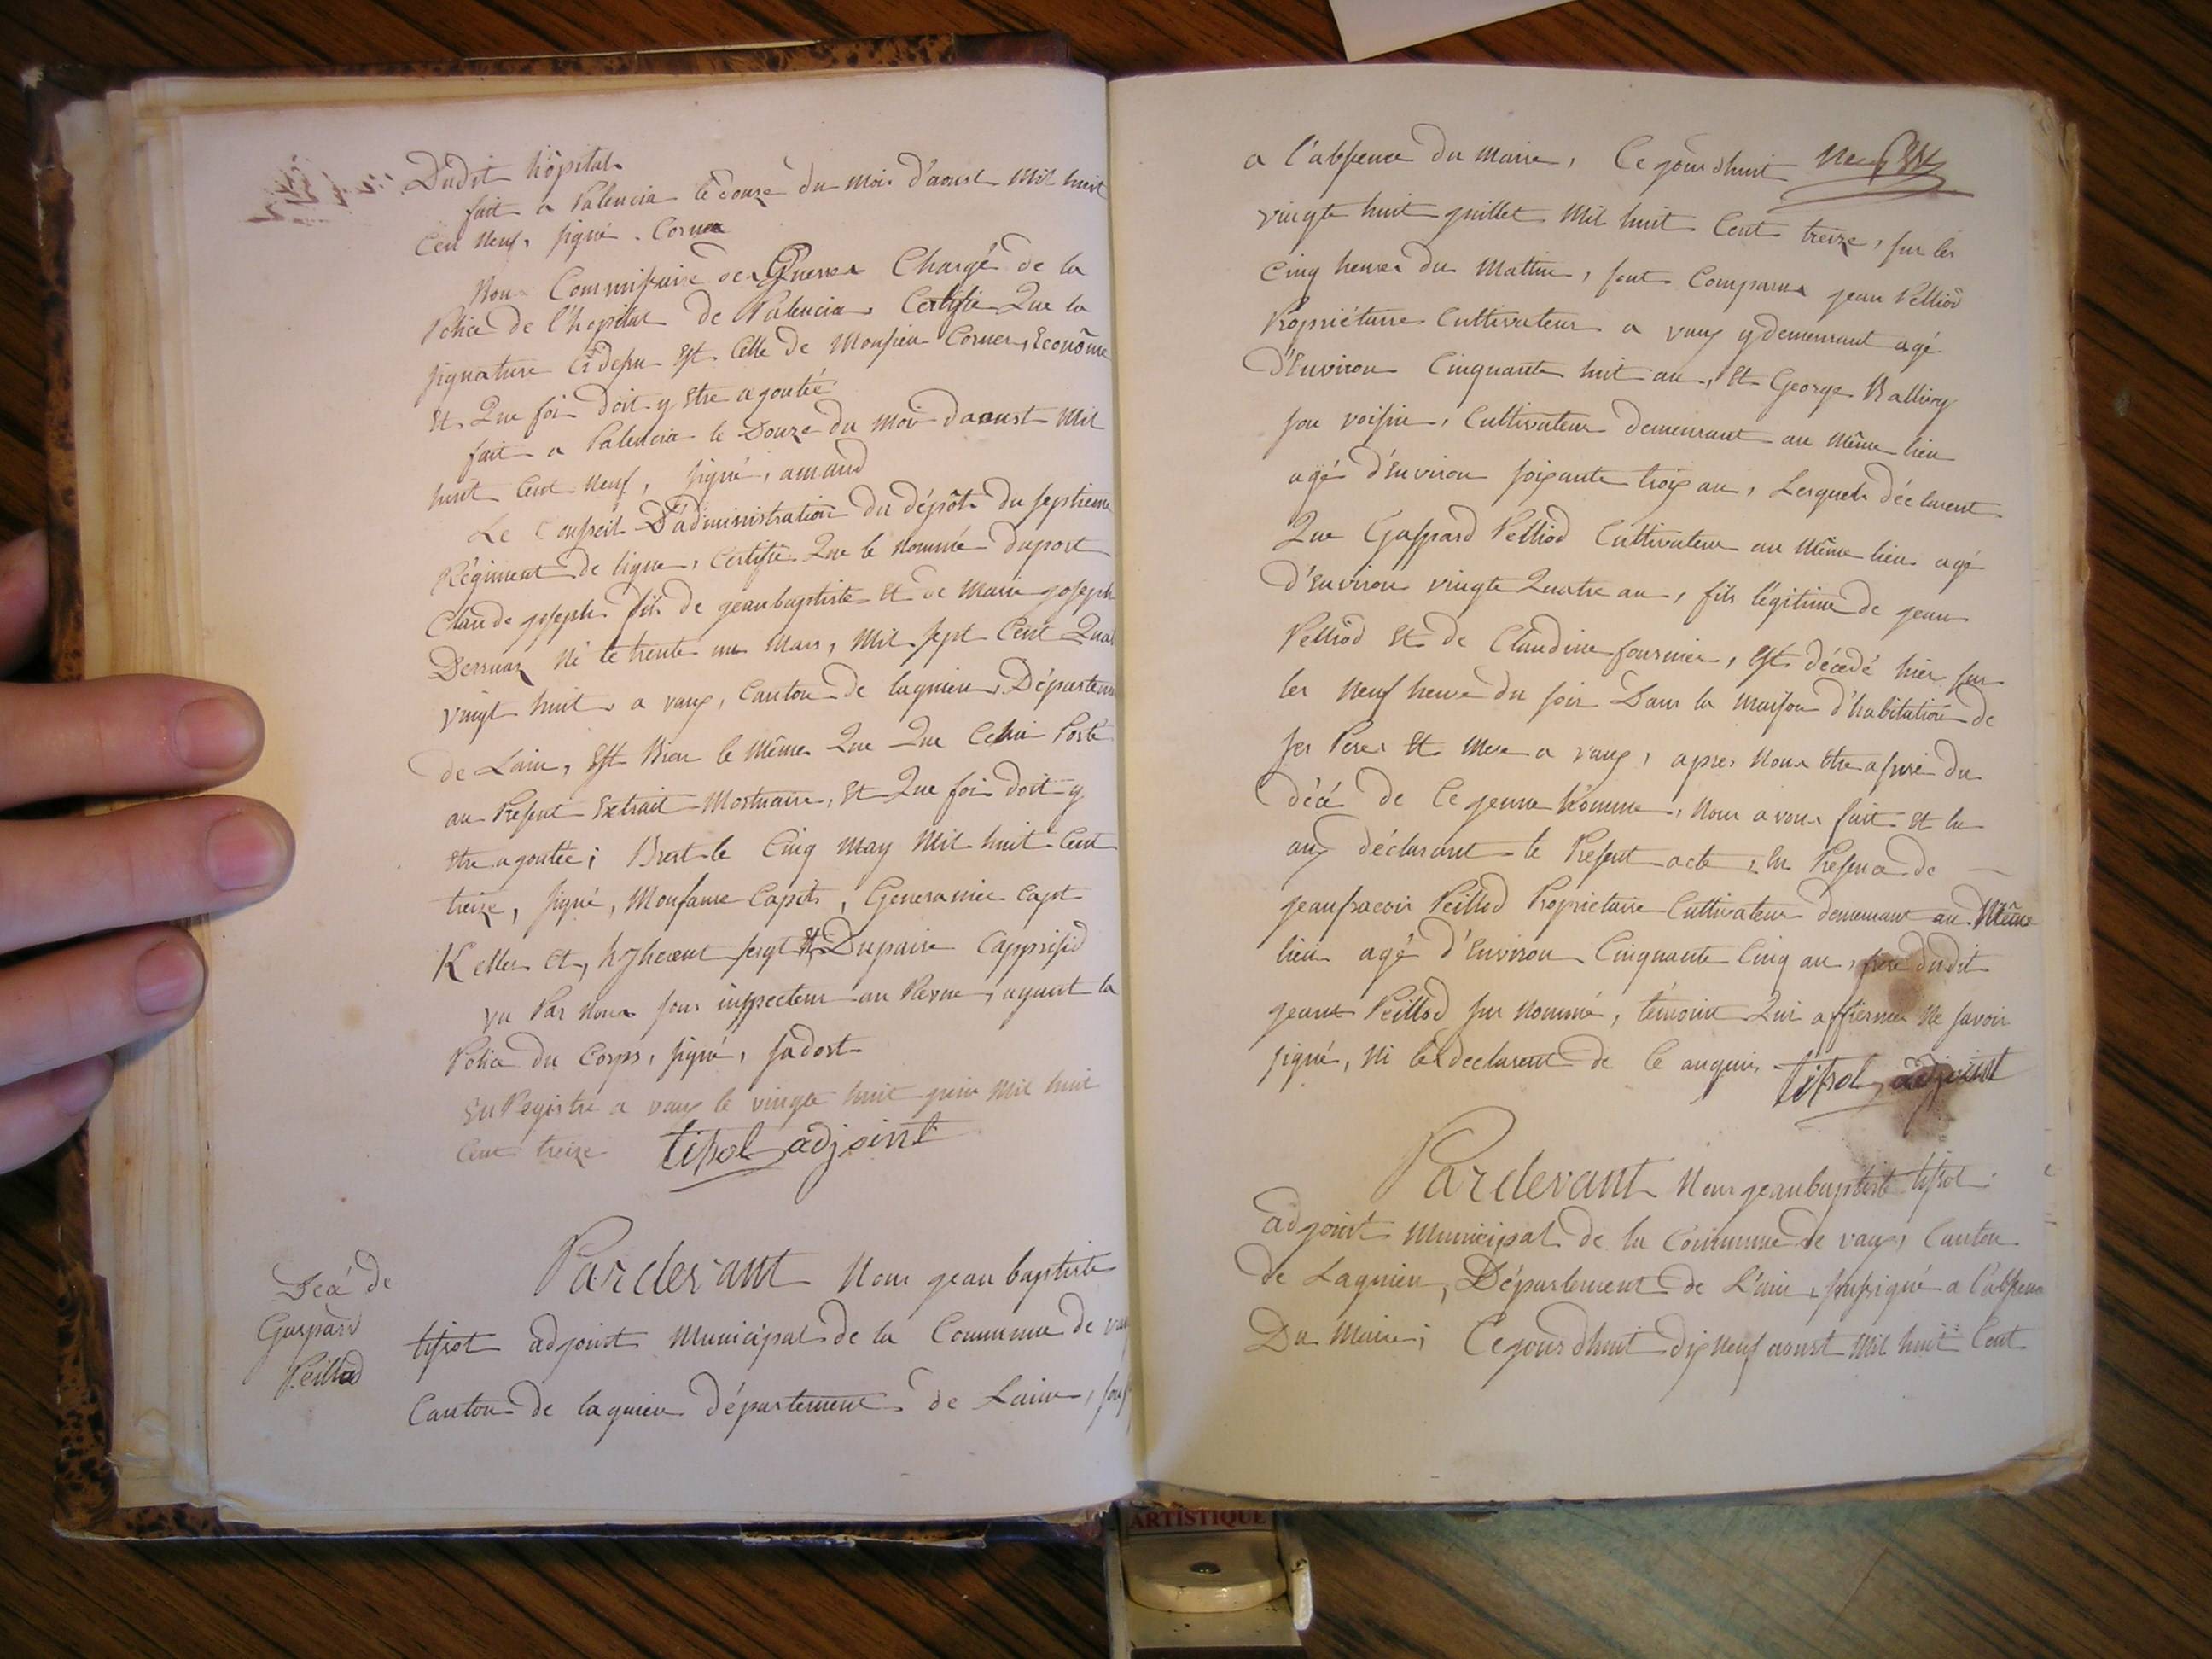 Dudit hôpital
fait a Palencia le douze du mois d'aoust mil huit
Cen neuf, signé. Corner
Nous Commissaire des Guerres Chargé de la
Police de l'hopital de Palencia, Certifie Que la
signature Cidessu Est Celle de Monsieu Corner, Econôme
Et Que foi doit y Etre agoutée
fait a Palencia le Douze du moi daoust Mil
huit Cent neuf, signé, amand
Le Conseil D'administration du dépôt du septieme
Régiment de ligne, Certifie Que le nommé duport
Claude joseph fils de jeanbaptiste Et de Marie joseph
né le trente un Mars, mil sept Cent Qua
vingt huit a vaux, Canton de lagnieu, Départem
de Lain, Est Bien le même Que Que Celui Porté
au Present Extrait Mortuaire, Et Que foi doit y
Etre agoutée; Brest le Cinq may Mil huit Cent
treize, signé, Capit, Capt
Keller Et, sergt Et Dupaire
vu Par Nous sous inspecteur au Revue, ayant la
Police du Corps, signé, sadost
EnRegistré a vaux le vingte huit juin Mil huit
Cent treize tissot adjoint
Décé de
Gaspard
Peillod
Pardevant Nous jean baptiste
tissot adjoint Municipal de la Commune de vau
Canton de lagnieu département de Lain, sous
a l'abssence du Maire, Ce jourdhuit
vingte huit juillet Mil huit Cent treize, sur les
Cinq heures du Mattin, sont Comparus jean Pelliod
Propriétaire Cultivateur a vaux y demeurant agé
d'Environ Cinquante huit an, Et George Ballivy
son voisin, Cultivateur demeurant au Même lieu
agé d'Environ soixante troix an, Lesquels déclarent
Que Gasspard Pelliod Cultivateur au Même lieu agé
d'Environ vingte Quatre an, fils légitime de jean
Pelliod Et de Claudine fournier, Est décédé hier sur
les Neuf heure du soir Dans la Maison d'habitation de
ses Peres Et Mere a vaux, apres Nous Etre assuré du
décé de Ce jeune homme, Nous avons fait Et lu
aux déclarant le Présent acte, En Présence de
jeanfrancois Peillod Propriétaire Cultivateur demeurant au Même
lieu agé d'Environ Cinquante Cinq an, frere dudit
jean Peillod sus nommé, témoint Qui affierme Ne savoir
signé, Ni le declarent de Ce anquis tissot adjoint
Pardevant Nous jeanbaptiste tissot
adjoint Municipal de la Commune de vaux, Canton
de Lagnieu, Département de L'ain, sousigné a l'absence
Du Maire; Ce jourdhuit dix neuf aoust Mil huit Cent
ARTISTIQUE